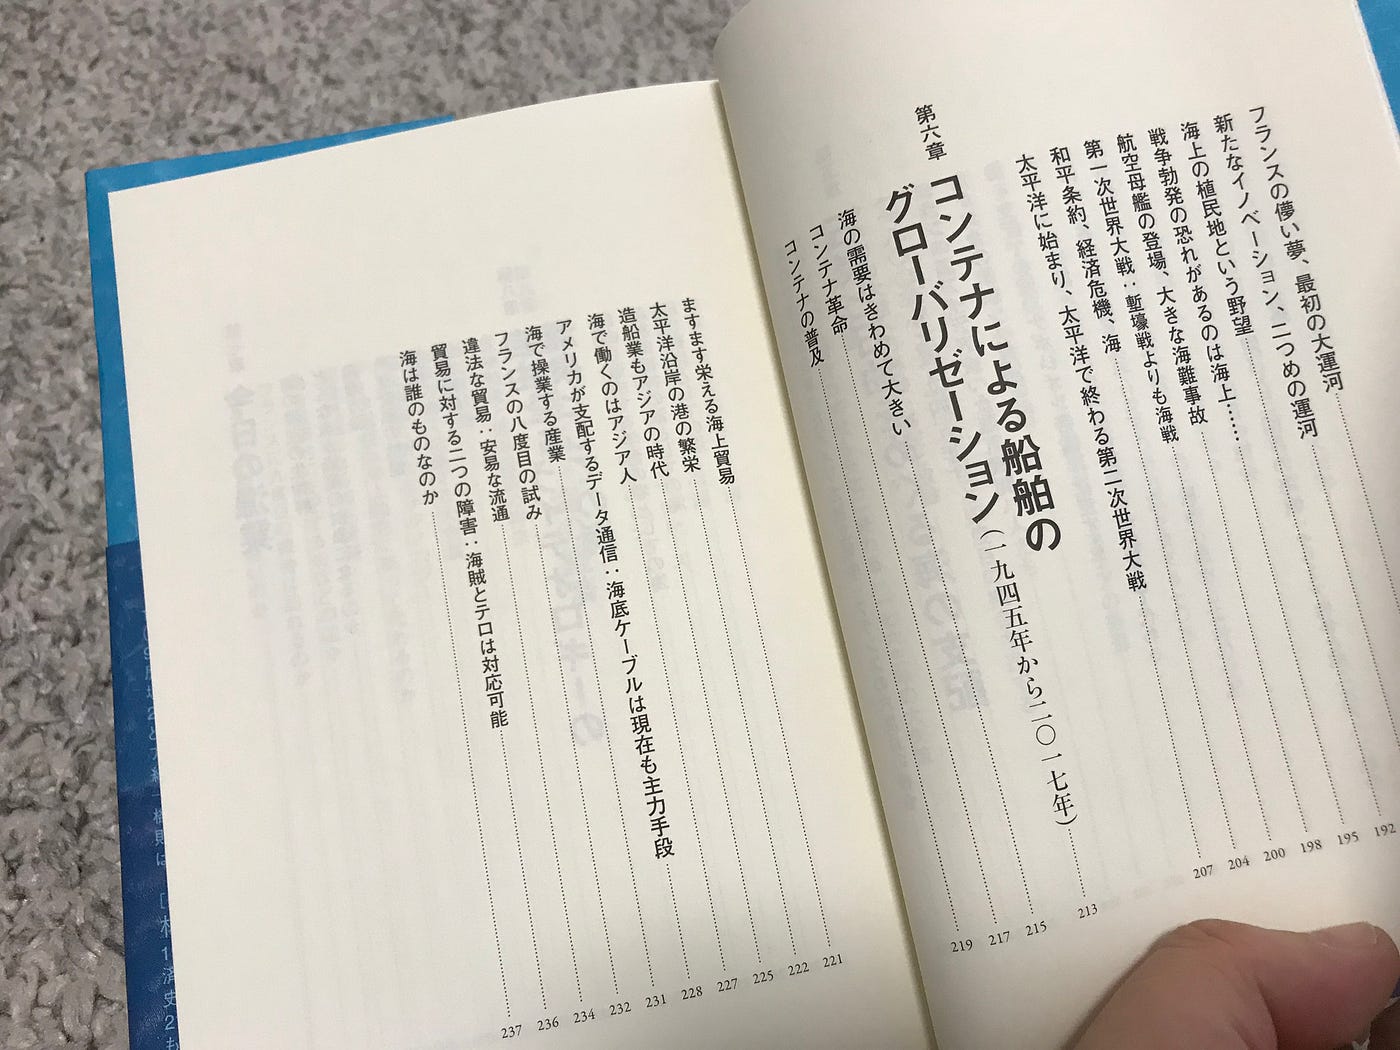 フランスの儚い夢、最初の大運河
新たなイノベーション、二つめの運河
海上の植民地という野望 192
戦争勃発の恐れがあるのは海上…… 195
航空母艦の登場、大きな海難事故 198
第一次世界大戦：塹壕戦よりも海戦 200
和平条約、経済危機、海 204
太平洋に始まり、太平洋で終わる第二次世界大戦 207
第六章 コンテナによる船舶の
グローバリゼーション（一九四五年から二〇一七年） 213
海の需要はきわめて大きい 215
コンテナ革命 217
コンテナの普及 219
ますます栄える海上貿易 221
太平洋沿岸の港の繁栄 222
造船業もアジアの時代 225
海で働くのはアジア人 227
アメリカが支配するデータ通信：海底ケーブルは現在も主力手段 228
海で操業する産業 231
フランスの八度目の試み 232
違法な貿易：安易な流通 234
貿易に対する二つの障害：海賊とテロは対応可能 236
海は誰のものなのか 237